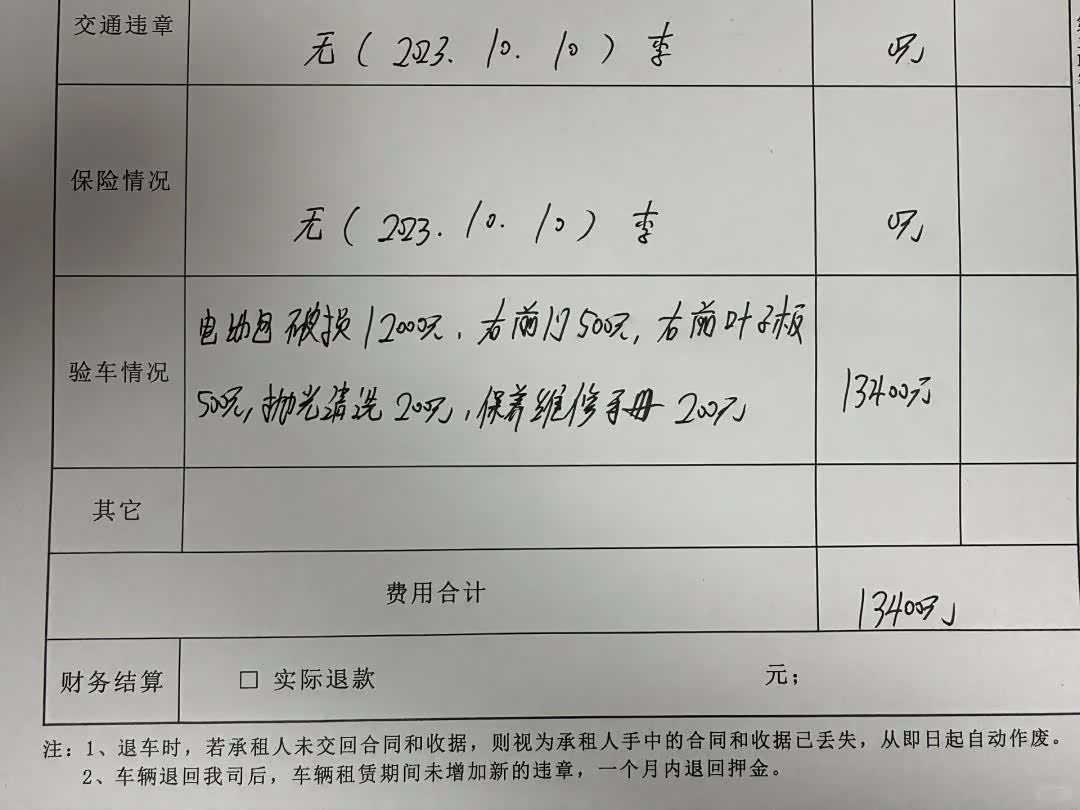 交通违章 无(2023.10.10)李 0元
保险情况 无(2023.10.10)李 0元
电动包破损12000元,右前门500元,右前叶子板
验车情况 13400元
500元,抛光清洗200元,保养维修手册200元
其它
费用合计 13400元
财务结算 □ 实际退款 元;
注:1、退车时,若承租人未交回合同和收据,则视为承租人手中的合同和收据已丢失,从即日起自动作废。
2、车辆退回我司后,车辆租赁期间未增加新的违章,一个月内退回押金。